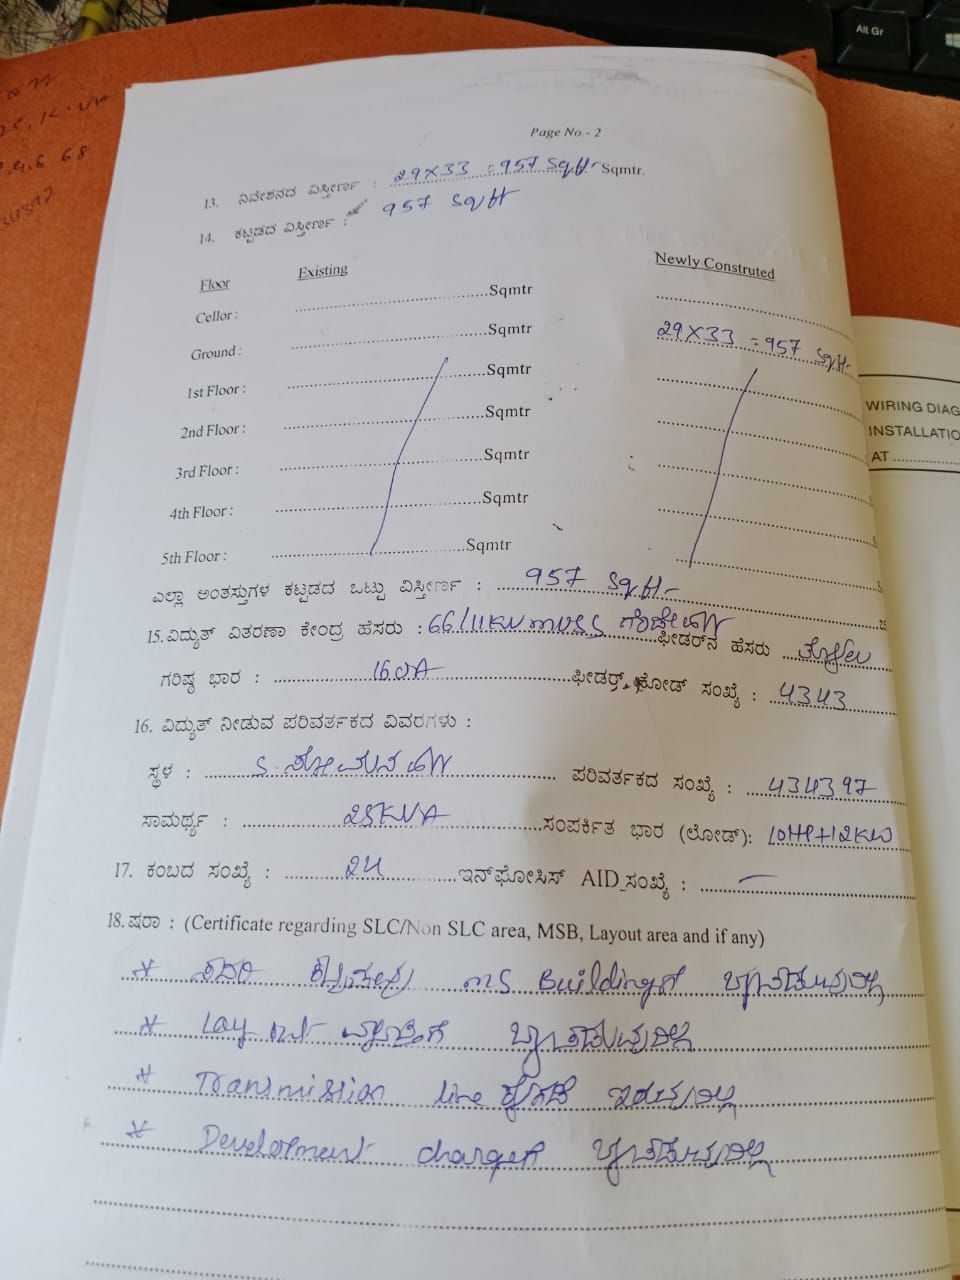 Alt Gr
Page No.- 2
13. ನಿವೇಶನದ ವಿಸ್ತೀರ್ಣ : 29X33 = 957 Sqft Sqmtr.
14. ಕಟ್ಟಡದ ವಿಸ್ತೀರ್ಣ : 957 Sqft
Floor Existing Newly Construted
Cellor : Sqmtr
Ground : Sqmtr 29X33 = 957 Sqft
1st Floor : Sqmtr
2nd Floor : Sqmtr
3rd Floor : Sqmtr
4th Floor : Sqmtr
5th Floor : Sqmtr
ಎಲ್ಲಾ ಅಂತಸ್ತುಗಳ ಕಟ್ಟಡದ ಒಟ್ಟು ವಿಸ್ತೀರ್ಣ : 957 Sqft
15. ವಿದ್ಯುತ್ ವಿತರಣಾ ಕೇಂದ್ರ ಹೆಸರು : 66/11KV MUSS ಫೀಡರ್‌ನ ಹೆಸರು
ಗರಿಷ್ಠ ಭಾರ : 160A ಫೀಡರ್ ಕೋಡ್ ಸಂಖ್ಯೆ : 4343
16. ವಿದ್ಯುತ್ ನೀಡುವ ಪರಿವರ್ತಕದ ವಿವರಗಳು :
ಸ್ಥಳ : S. ಪರಿವರ್ತಕದ ಸಂಖ್ಯೆ : 434397
ಸಾಮರ್ಥ್ಯ : 25KVA ಸಂಪರ್ಕಿತ ಭಾರ (ಲೋಡ್): 10HP+12KW
17. ಕಂಬದ ಸಂಖ್ಯೆ : 24 ಇನ್‌ಫೋಸಿಸ್ AID ಸಂಖ್ಯೆ : —
18. ಷರಾ : (Certificate regarding SLC/Non SLC area, MSB, Layout area and if any)
* ಸದರಿ MS Buildingಗೆ ಒಳಪಡುವುದಿಲ್ಲ
* Layout ಒಳಪಡುವುದಿಲ್ಲ
* Transmission line ಇರುವುದಿಲ್ಲ
* Development chargeಗೆ ಒಳಪಡುವುದಿಲ್ಲ
WIRING DIAG
INSTALLATIO
AT